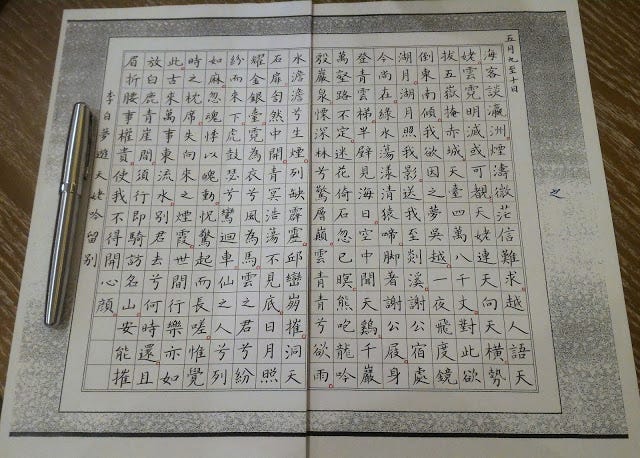 五月九至十日
之
海客談瀛洲煙濤微茫信難求越人語天
姥雲霓明滅或可覩天姥連天向天橫勢
拔五嶽掩赤城天臺四萬八千丈對此欲
倒東南傾我欲因之夢吳越一夜飛度鏡
湖月湖月照我影送我至剡溪謝公宿處
今尚在綠水蕩漾清猿啼腳著謝公屐身
登青雲梯半壁見海日空中聞天鷄千巖
萬壑路不定迷花倚石忽已暝熊咆龍吟
殷巖泉慄深林兮驚層巔雲青青兮欲雨
水澹澹兮生煙列缺霹靂邱巒崩摧洞天
石扉訇然中開青冥浩蕩不見底日月照
耀金銀臺霓為衣兮風為馬雲之君兮紛
紛而來下虎鼓瑟兮鸞迴車仙之人兮列
如麻忽魂悸以魄動怳驚起而長嗟惟覺
時之枕席失向來之煙霞世間行樂亦如
此古來萬事東流水別君去兮何時還且
放白鹿青崖間須行即騎訪名山安能摧
眉折腰事權貴使我不得開心顏
李白夢遊天姥吟留別